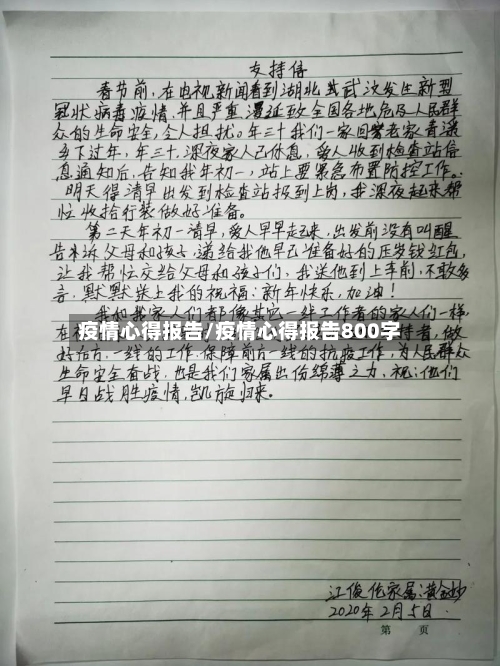 支持信
春节前,在电视新闻看到湖北武汉发生新型
冠状病毒疫情,并且严重漫延致全国各地危及人民群
众的生命安全,令人担扰。年三十我们一家回老家青溪
乡下过年,年三十,深夜家人已休息,爱人收到检查站信
息通知后,告知我年初一,站上要紧急布置防控工作。
明天得清早出发到检查站报到上岗,我深夜起来帮
忙收拾行装做好准备。
第二天年初一清早,爱人早早起来,出发前没有叫醒
告诉父母和孩子,递给我他早已准备好的压岁钱红包,
让我帮忙交给父母和孩子们,我送他到上车前,不敢多
言,默默送上我的祝福:新年快乐,加油!
我和我家人们都像其它一线工作者的家人们一样,
在
疫情心得报告/疫情心得报告800字
持者,做
好后方,一线的工作,保障前方一线的抗疫工作,为人民群众
生命安全奋战,也是我们家属出份绵薄之力,祝:他们
早日战胜疫情,凯旋归来。
江俊伦家属:黄
2020年2月5日
第 页